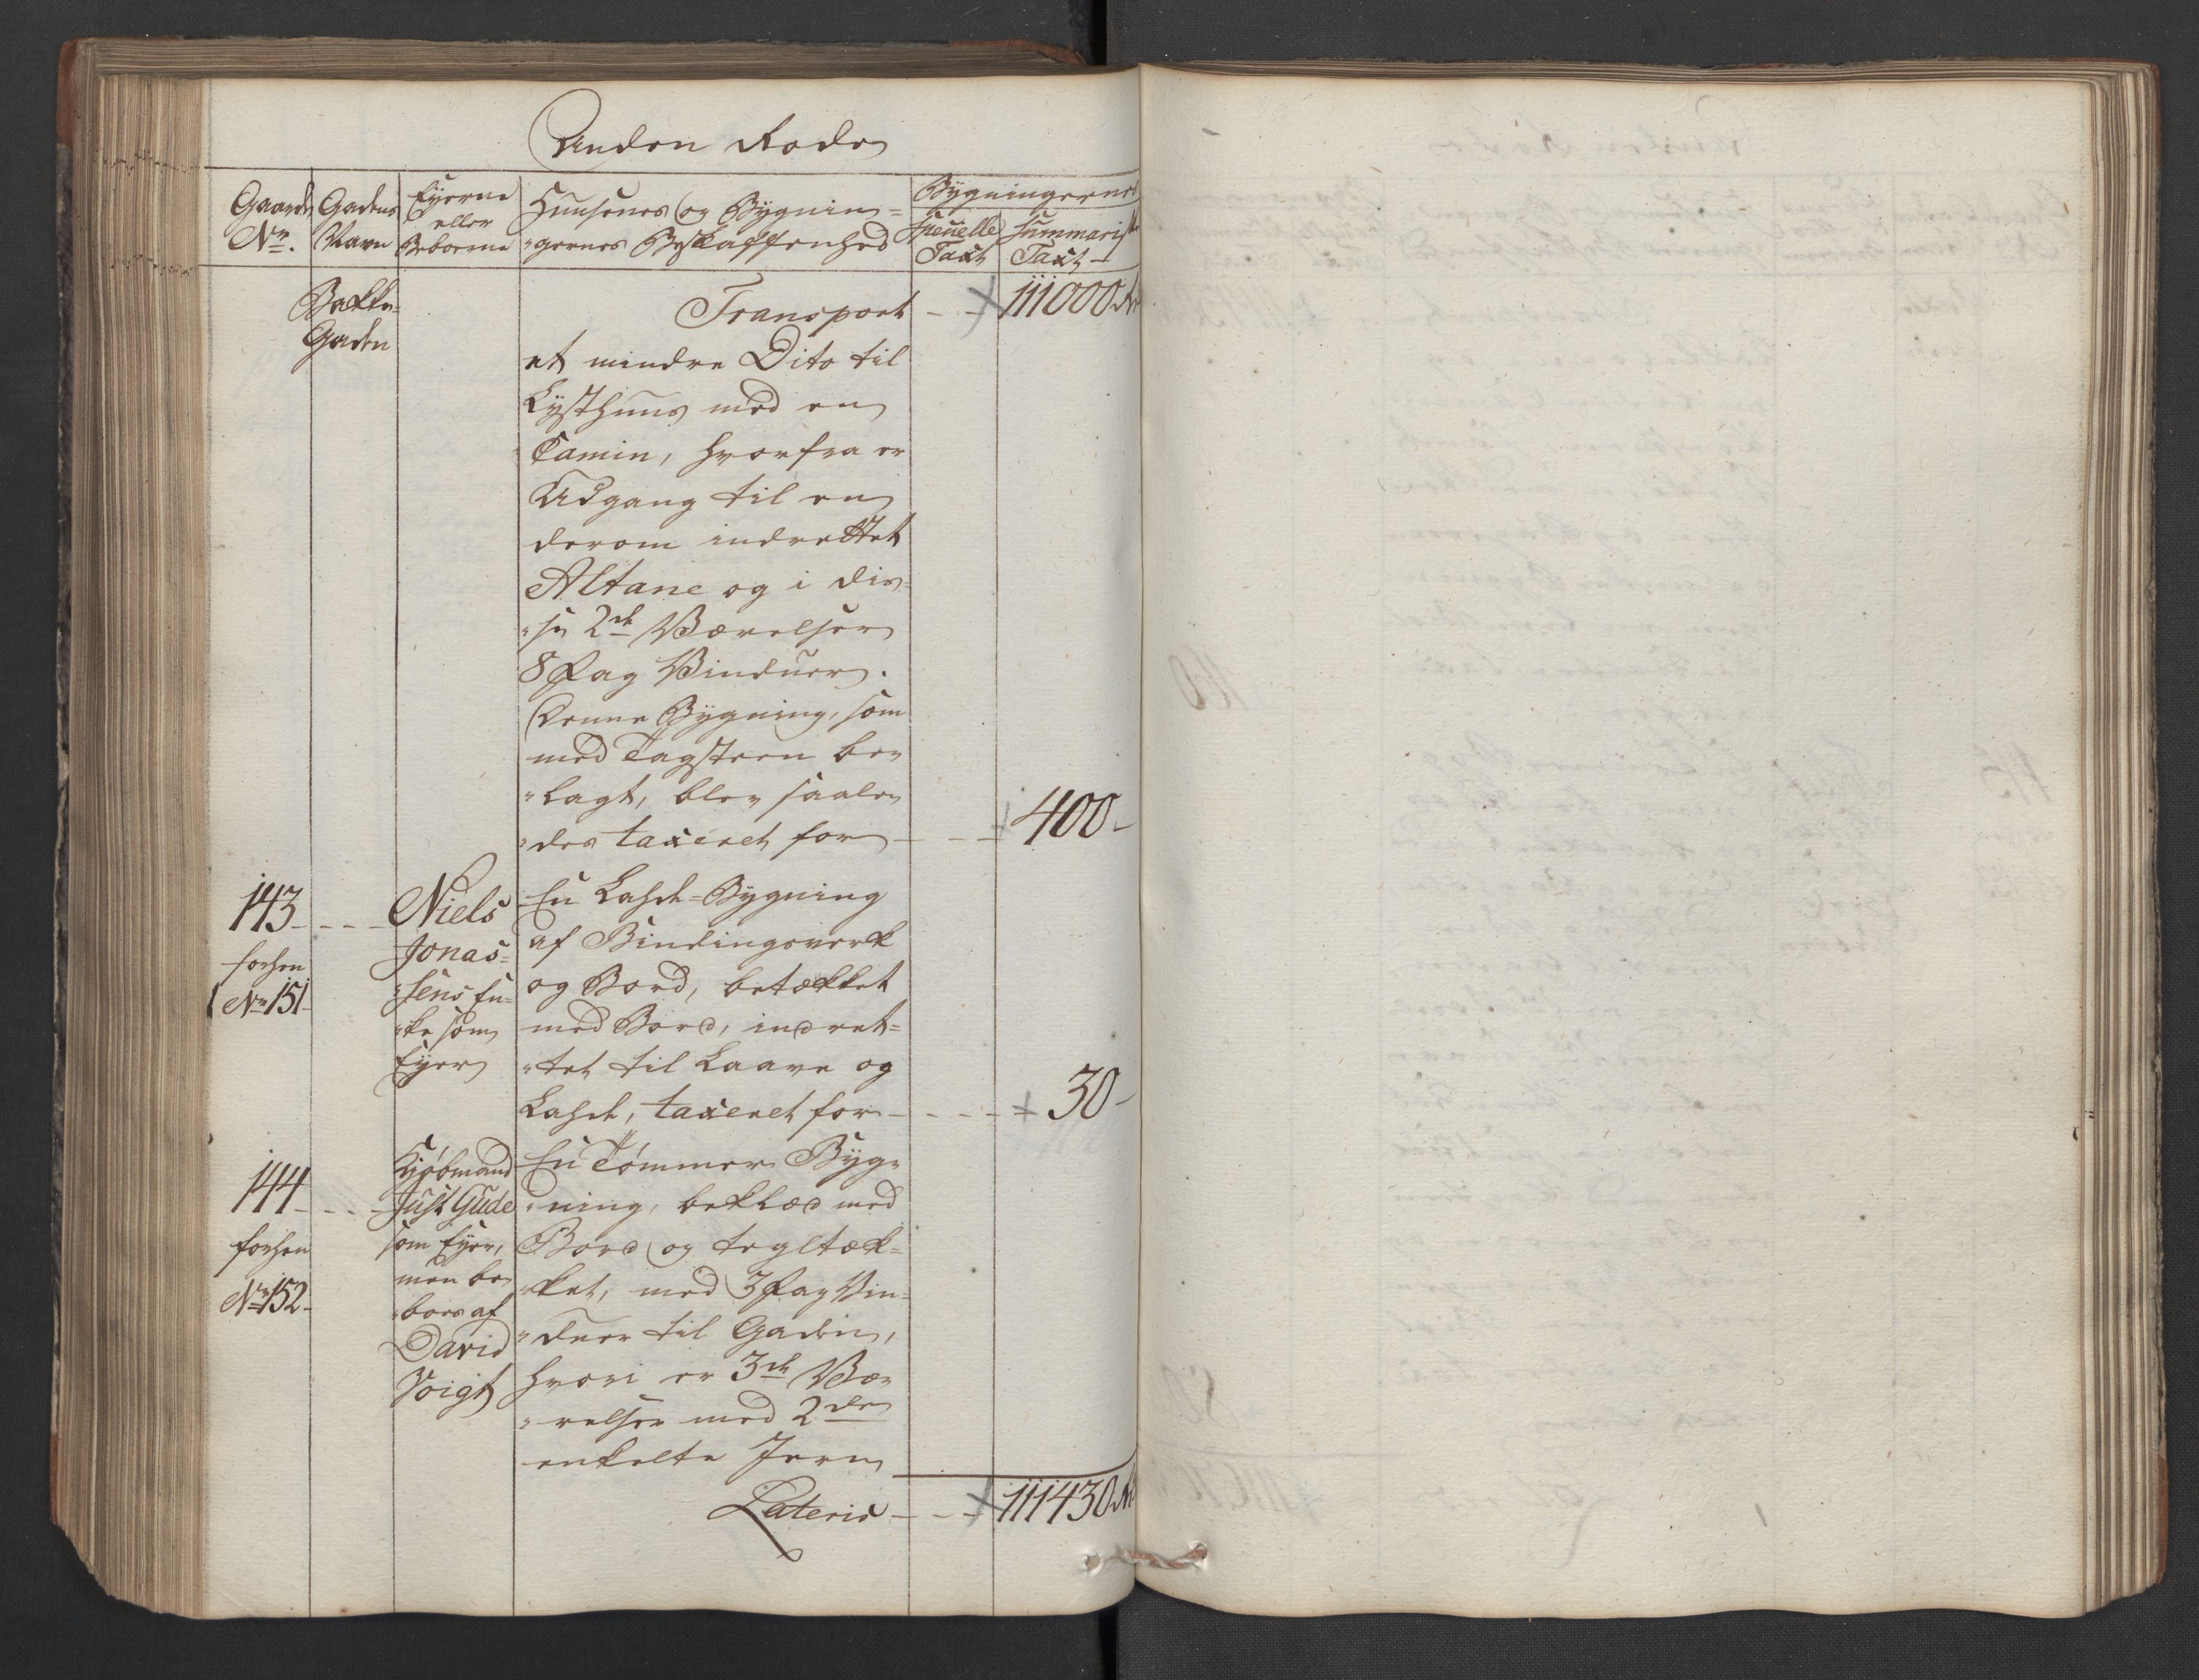 Anden Rode
Gaards Nr.
Gadens Navn
Eyerne eller Beboerne
Huusenes og Bygnin=
"gernes Beskaffenhed
Bygningernes
Specielle Taxt
Summariske Taxt
Bakke=
Gaden
Transport - - 111000 Rd
et mindre Dito til
Lysthuus med en
Camin, hvorfra er
Adgang til en
derom indrettet
Altane og i dis=
"se 2de Værelser
8 Fag Vinduer.
Denne Bygning, som
med Tagsteen be=
"lagt, blev saale=
"des taxeret for - - - 400 -
143 - - - -
forhen
No 151 -
Niels
Jonas=
"sens En=
"ke som
Eyer
En Ladde-Bygning
af Bindingsverk
og Bord, betækket
med Bord, indret=
"tet til Laave og
Ladde, taxeret for - - - - 30 -
144 - - - -
forhen
No 152 -
Kjøbmand
Just Gude
som Eyer,
men be=
"boes af
David
Voigt
En Tømmer Byg=
"ning, beklæd med
Bord og tegltæk=
"ket, med 3 Fag Vin=
"duer til Gaden,
hvori er 3de Væ=
"relser med 2de
enkelte Jern
Lateris - - - 111430 Rd